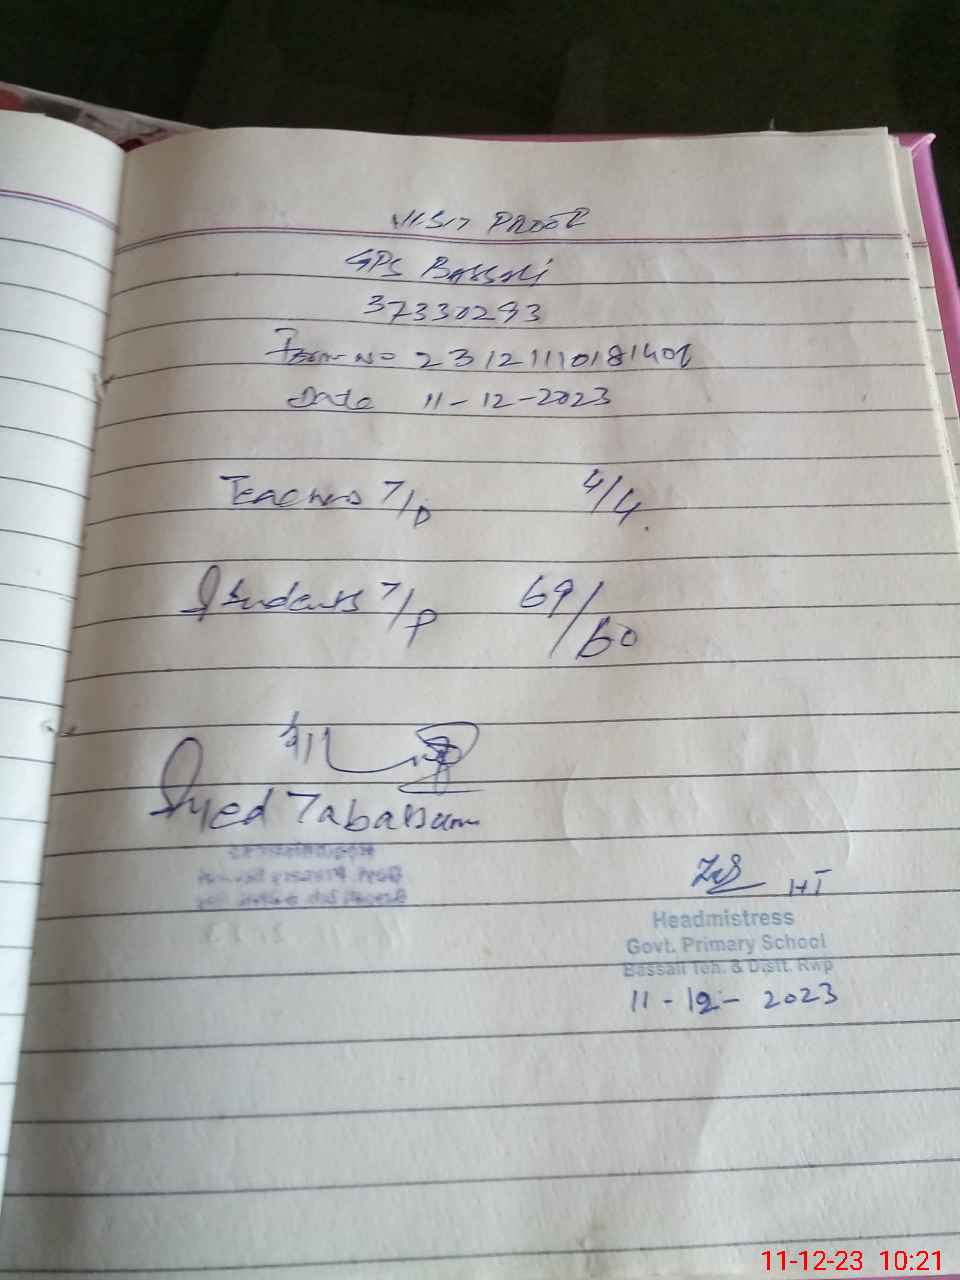 VISIT PROOF
GPS Bassali
37330293
Form No 23121110181401
Date 11-12-2023
Teachers T/P 4/4.
Students T/P 69/60
Syed Tabassum
HT
Headmistress
Govt. Primary School
Bassali Teh. & Distt. Rwp
11-12-2023
11-12-23 10:21